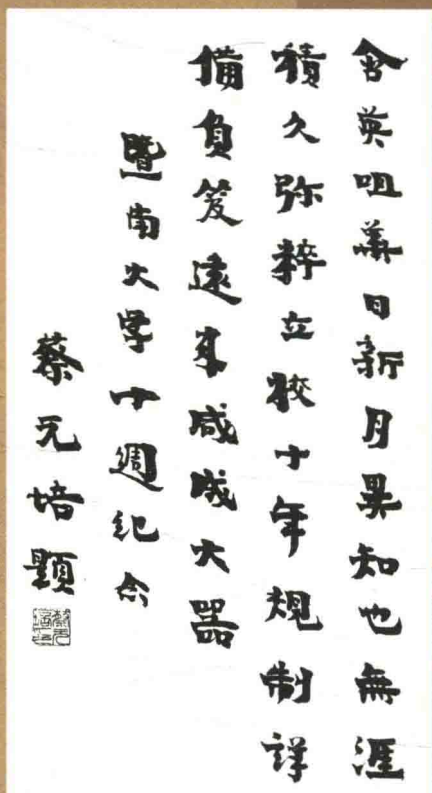 含英咀华日新月異知也無涯
積久弥粹立校十年規制详
備負笈遠来咸成大器
暨南大学十週纪念
蔡元培題